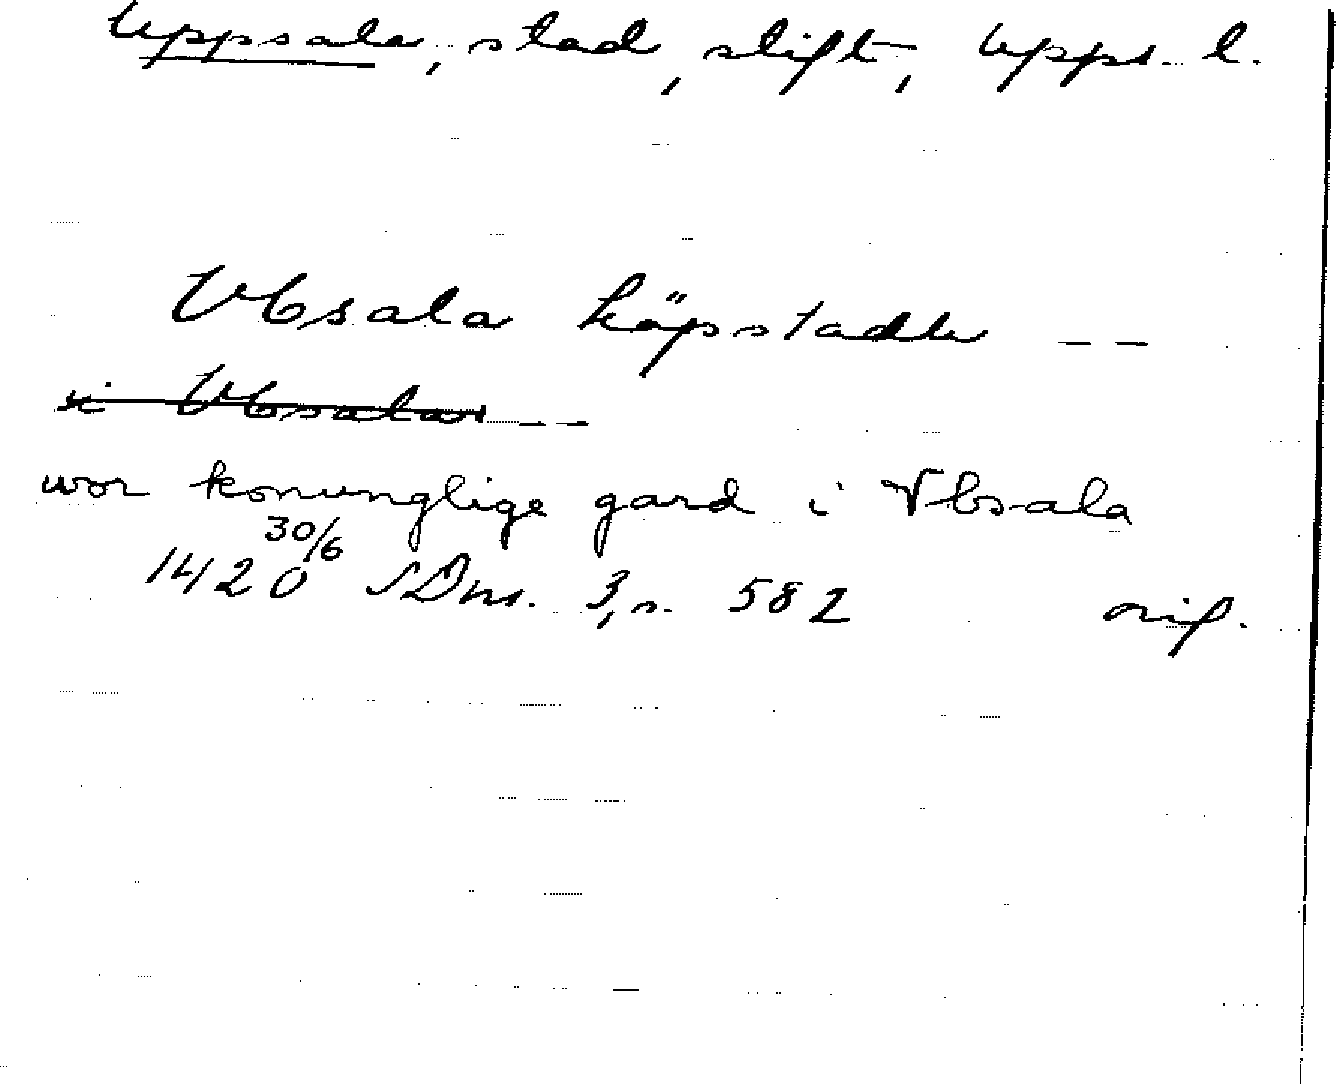 Uppsala, stad, stift, Upps. l.
Vbsala köpstadh _ _
i Vbsala _ _
wor konunglige gard i Vbsala
30/6
1420 SDns. 3, s. 582 orig.